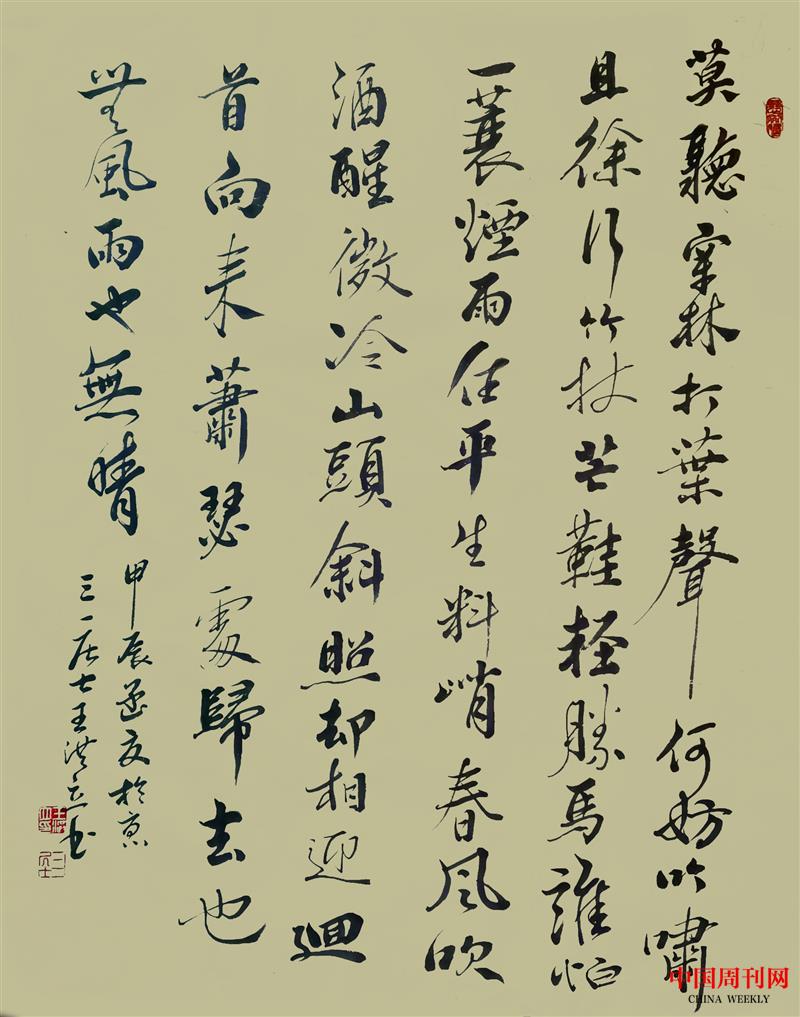 莫聽穿林打葉聲何妨吟嘯
且徐行竹杖芒鞋輕勝馬誰怕
一蓑煙雨任平生料峭春風吹
酒醒微冷山頭斜照却相迎迴
首向來蕭瑟處歸去也
無風雨也無晴
甲辰孟夏於京
三一居士王洪立书
中国周刊网
CHINA WEEKLY